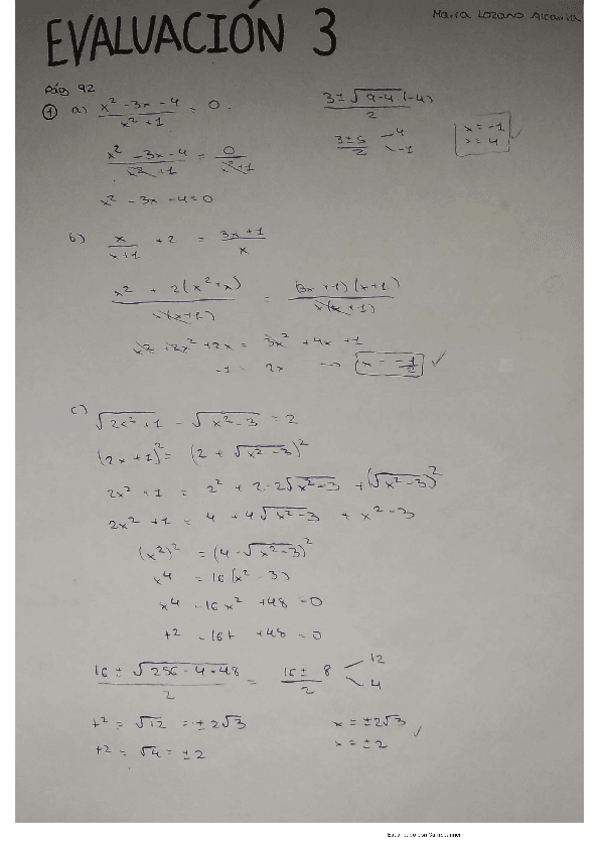 María Lozano Alcañiz
EVALUACIÓN 3
Pág 92
① a) x² - 3x - 4 / x² + 1 = 0
3 ± √9 - 4 · (-4) / 2
x² - 3x - 4 / x² + 1 = 0 / x² + 1
3 ± 5 / 2
4
-1
x = -1
x = 4
x² - 3x - 4 = 0
b) x / x + 1 + 2 = 3x + 1 / x
x² + 2(x² + x) / x(x + 1) = (3x + 1)(x + 1) / x(x + 1)
x² + 2x² + 2x = 3x² + 4x + 1
-1 = 2x → x = -1/2 ✓
c) √2x² + 1 - √x² - 3 = 2
(2x + 1)² = (2 + √x² - 3)²
2x² + 1 = 2² + 2 · 2√x² - 3 + (√x² - 3)²
2x² + 1 = 4 + 4√x² - 3 + x² - 3
(x²)² = (4 · √x² - 3)²
x⁴ = 16(x² - 3)
x⁴ - 16x² + 48 = 0
t² - 16t + 48 = 0
16 ± √256 - 4 · 48 / 2 = 16 ± 8 / 2
12
4
t² = √12 = ± 2√3
x = ± 2√3
t² = √4 = ± 2
x = ± 2 ✓